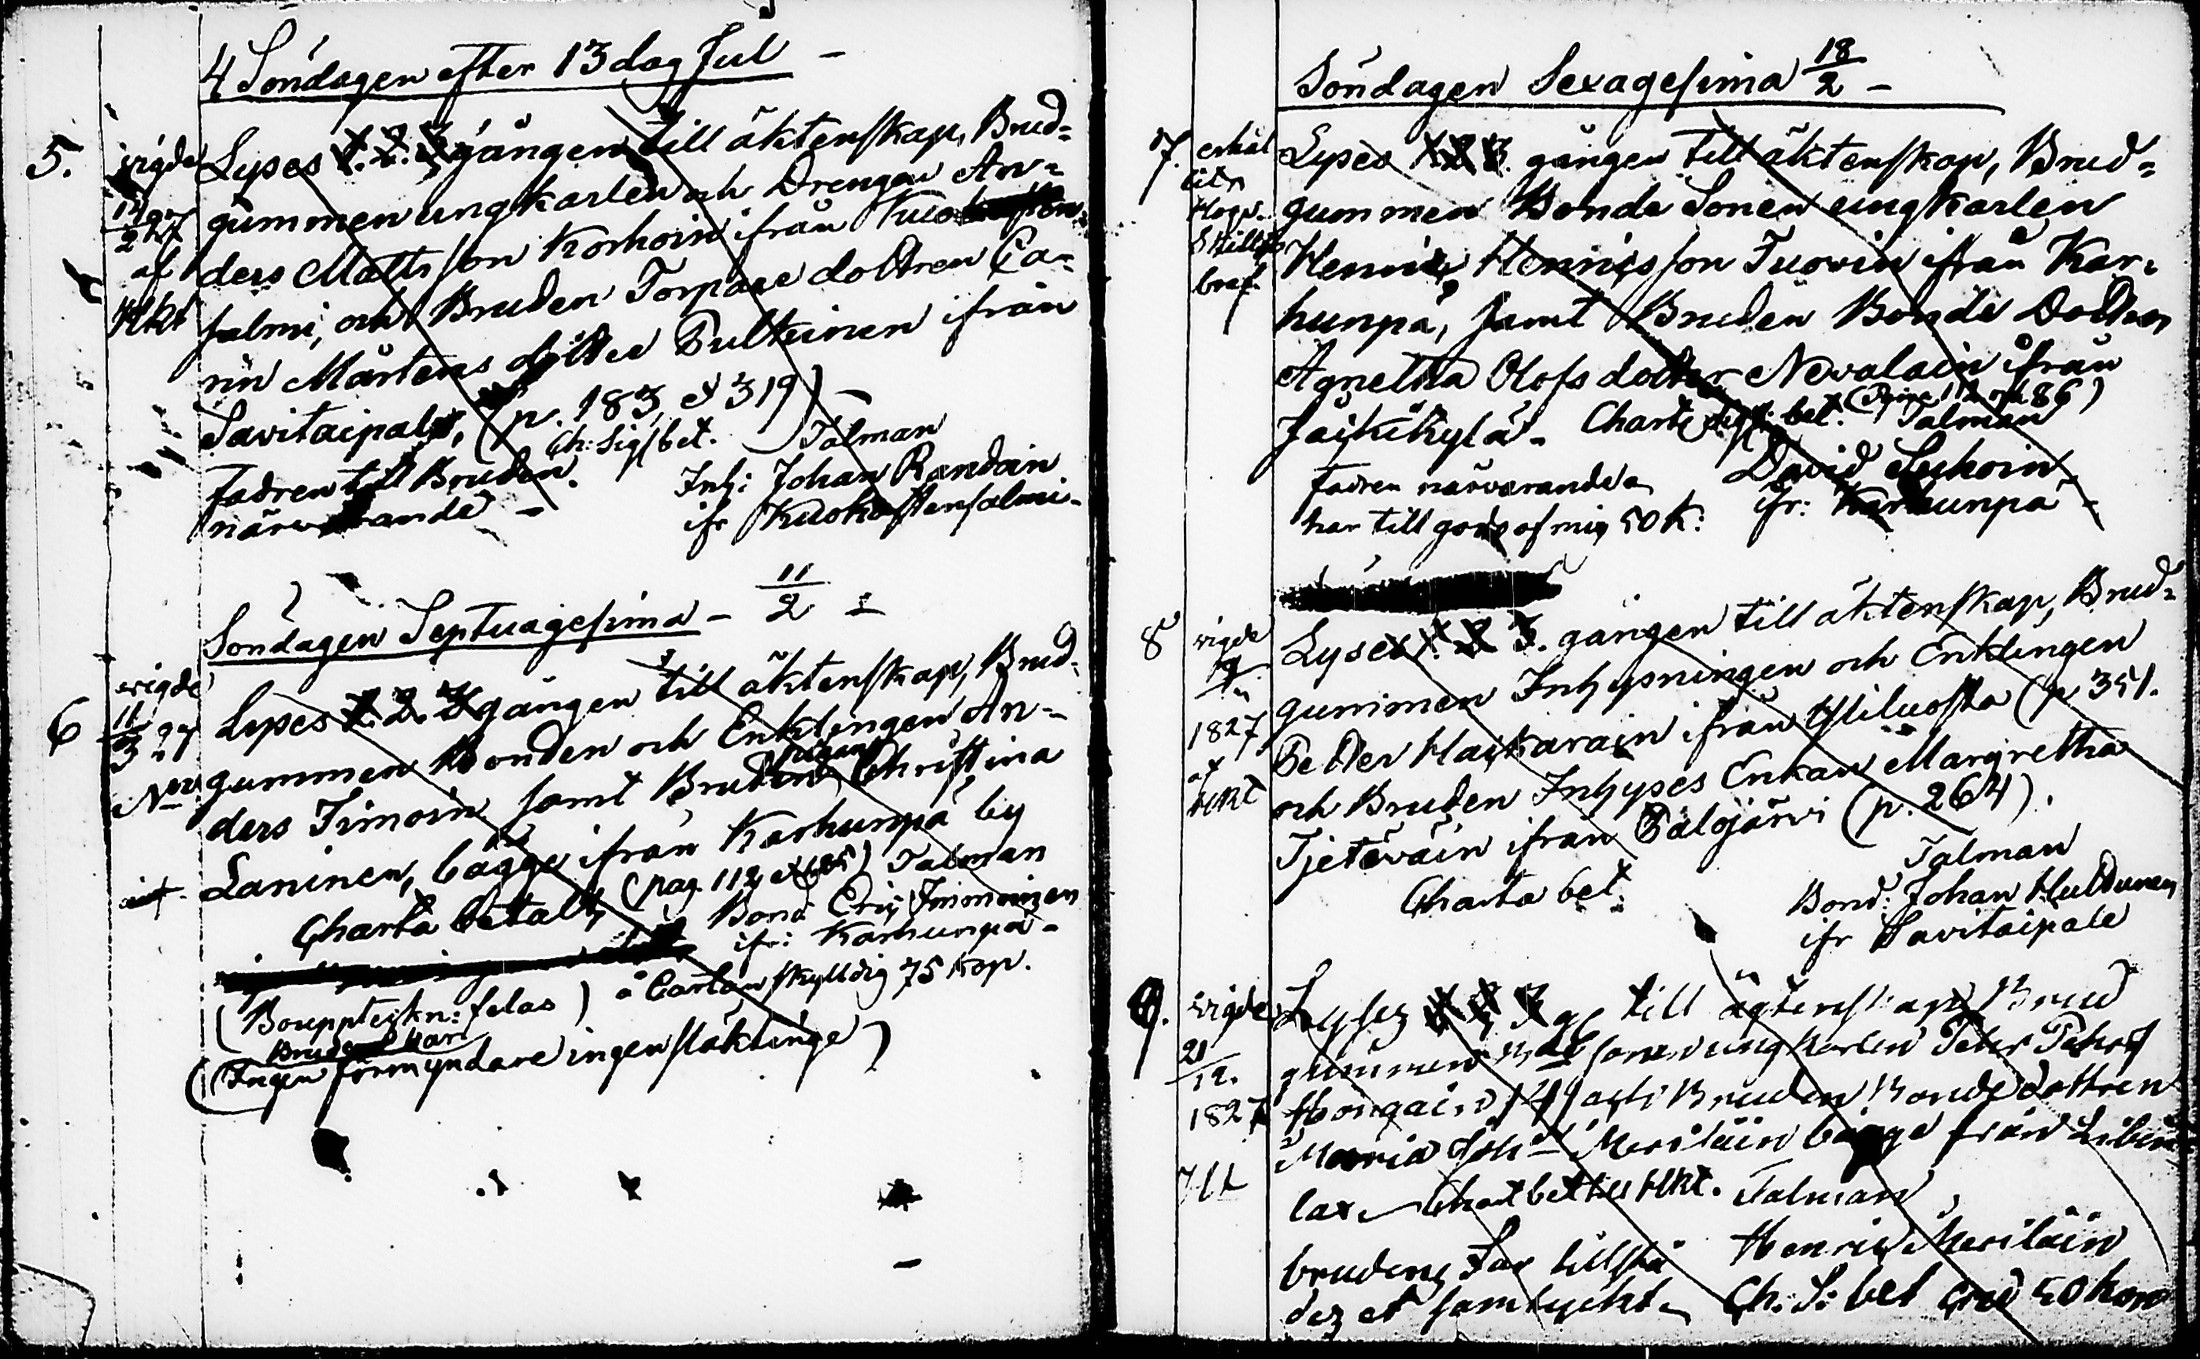 4 Söndagen efter 13 dag Jul -
5.
vigde
12/2 27
af
Hkt
Lyses 1. 2. 3 gången till äktenskap, Brud=
gummen ungkarlen och Drengen An=
ders Mattsson Korhoin ifrån Kuo
salmi, och Bruden Torpare dottren Ca=
rin Mårtens dotter Pulkinen ifrån
Savitaipale, (p. 183 et 319) -
Ch: Sig: bet.
Talman
Fadren till Bruden
närvarande -
Inh: Johan Randain
ifr Kuokastensalmi -
Söndagen Septuagesima - 11/2 -
6
vigde
11/3 27
Lyses 1. 2. 3 gången till äktenskap, Brud=
gummen Bonden och Enklingen An=
ders Timoin samt Bruden pigan Christina
Laninen, bägge ifrån Karhunpä by
Charta betalt, (pag 112 et 85) Talman
Bond Eric Immoinen
ifr: Karhunpä -
(Bouppteckn: felas) å Cartan skylldig 75 kop.
Bruden har
(Ingen förmyndare ingen släktinge)
Söndagen Sexagesima 18/2 -
7.
Skills
bref
Lyses 1 2 3. gången till äktenskap, Brud=
gummen Bonde Sonen ungkarlen
Henric Henricsson Tuovin ifrån Kar=
hunpä, samt Bruden Bonde Dottren
Agnetha Olofs dotter Nevalain ifrån
Jäikikylä - Charte sigil: bet. (Pagina 112 och 86)
Talman
Fadren närvarande
har till godo af mig 50 k:
David Suhoin
ifr: Karhunpä -
8
vigde
1827
af
Hkt
Lyses 1. 2 3. gången till äktenskap, Brud=
gummen Inhysningen och Enklingen
Petter Haikarain ifrån Ylikuosta (p 351.
och Bruden Inhyses Enkan Margretha
Tjeteväin ifrån Palojärvi (p. 264).
Charta bet.
Talman
Bond: Johan Huldunen
ifr Savitaipale
9.
vigde
21/12.
1827
Lyses 1 2 3 g till ägtenskap Brud
gummen sonen ungkarlen Peter Pehrs
Hongain Bruden Bonde dottren
Maria Joh Meriläin bägge från Libe
lax - Chart bet till Hkt. Talman
brudens Far tillstä
des et samtyckt -
Henric Meriläin
Ch. S: bet 50 kop